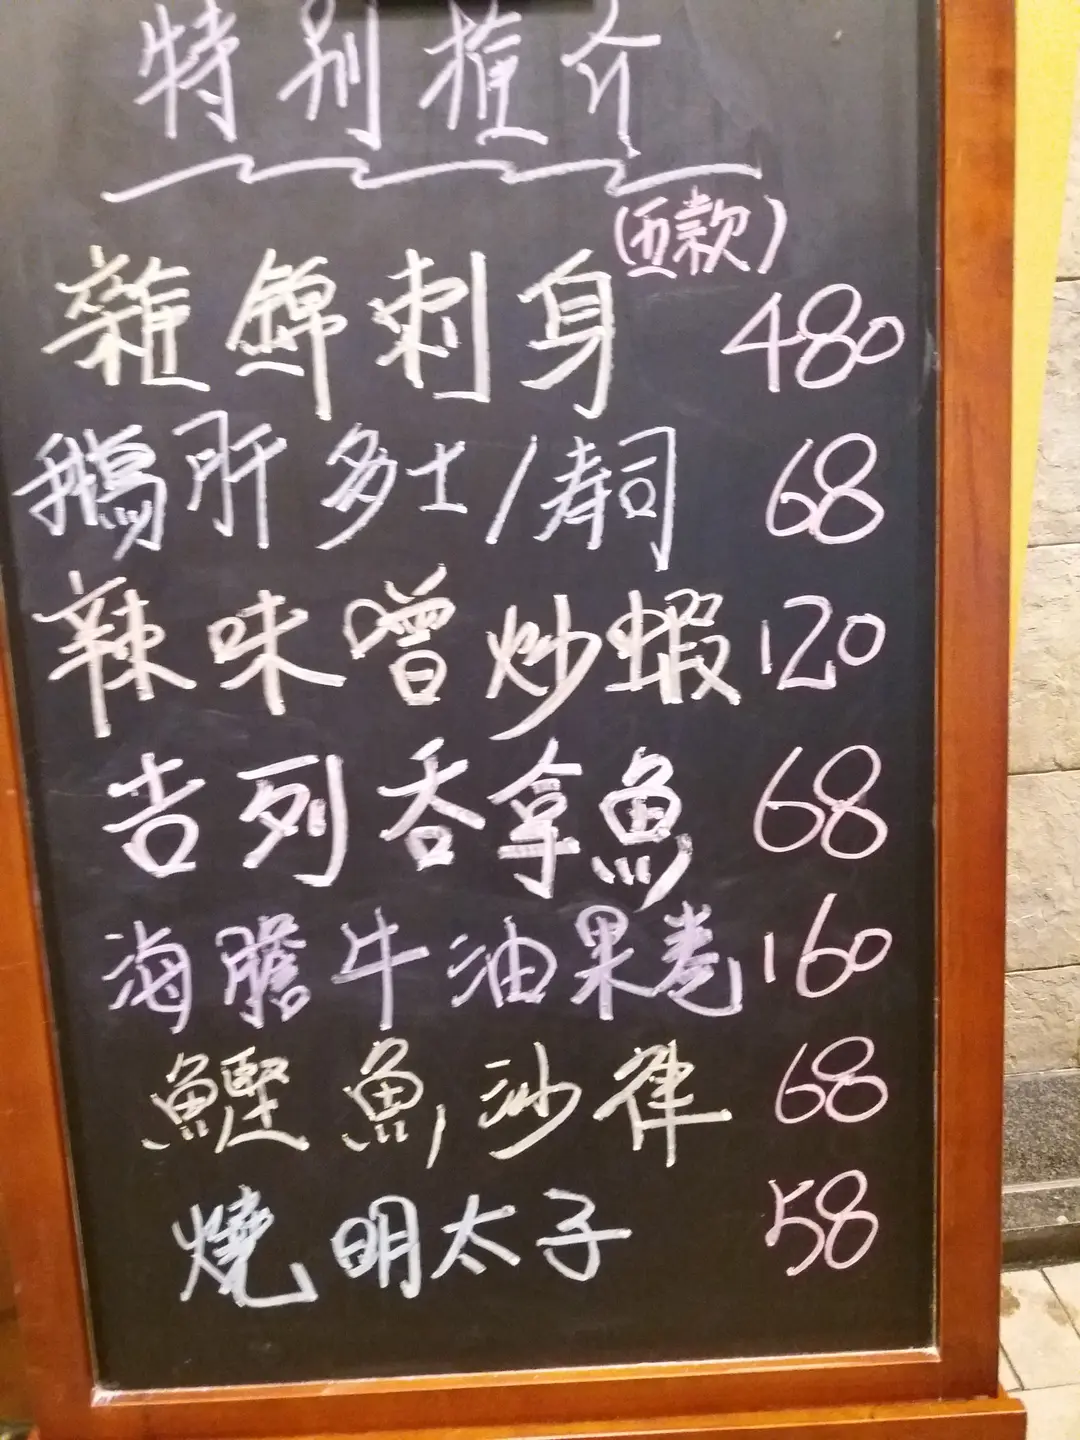 特別推介
(五款)
雜錦刺身 480
鵝肝多士/壽司 68
辣味噌炒蝦 120
吉列吞拿魚 68
海膽牛油果卷 160
鰹魚沙律 68
燒明太子 58